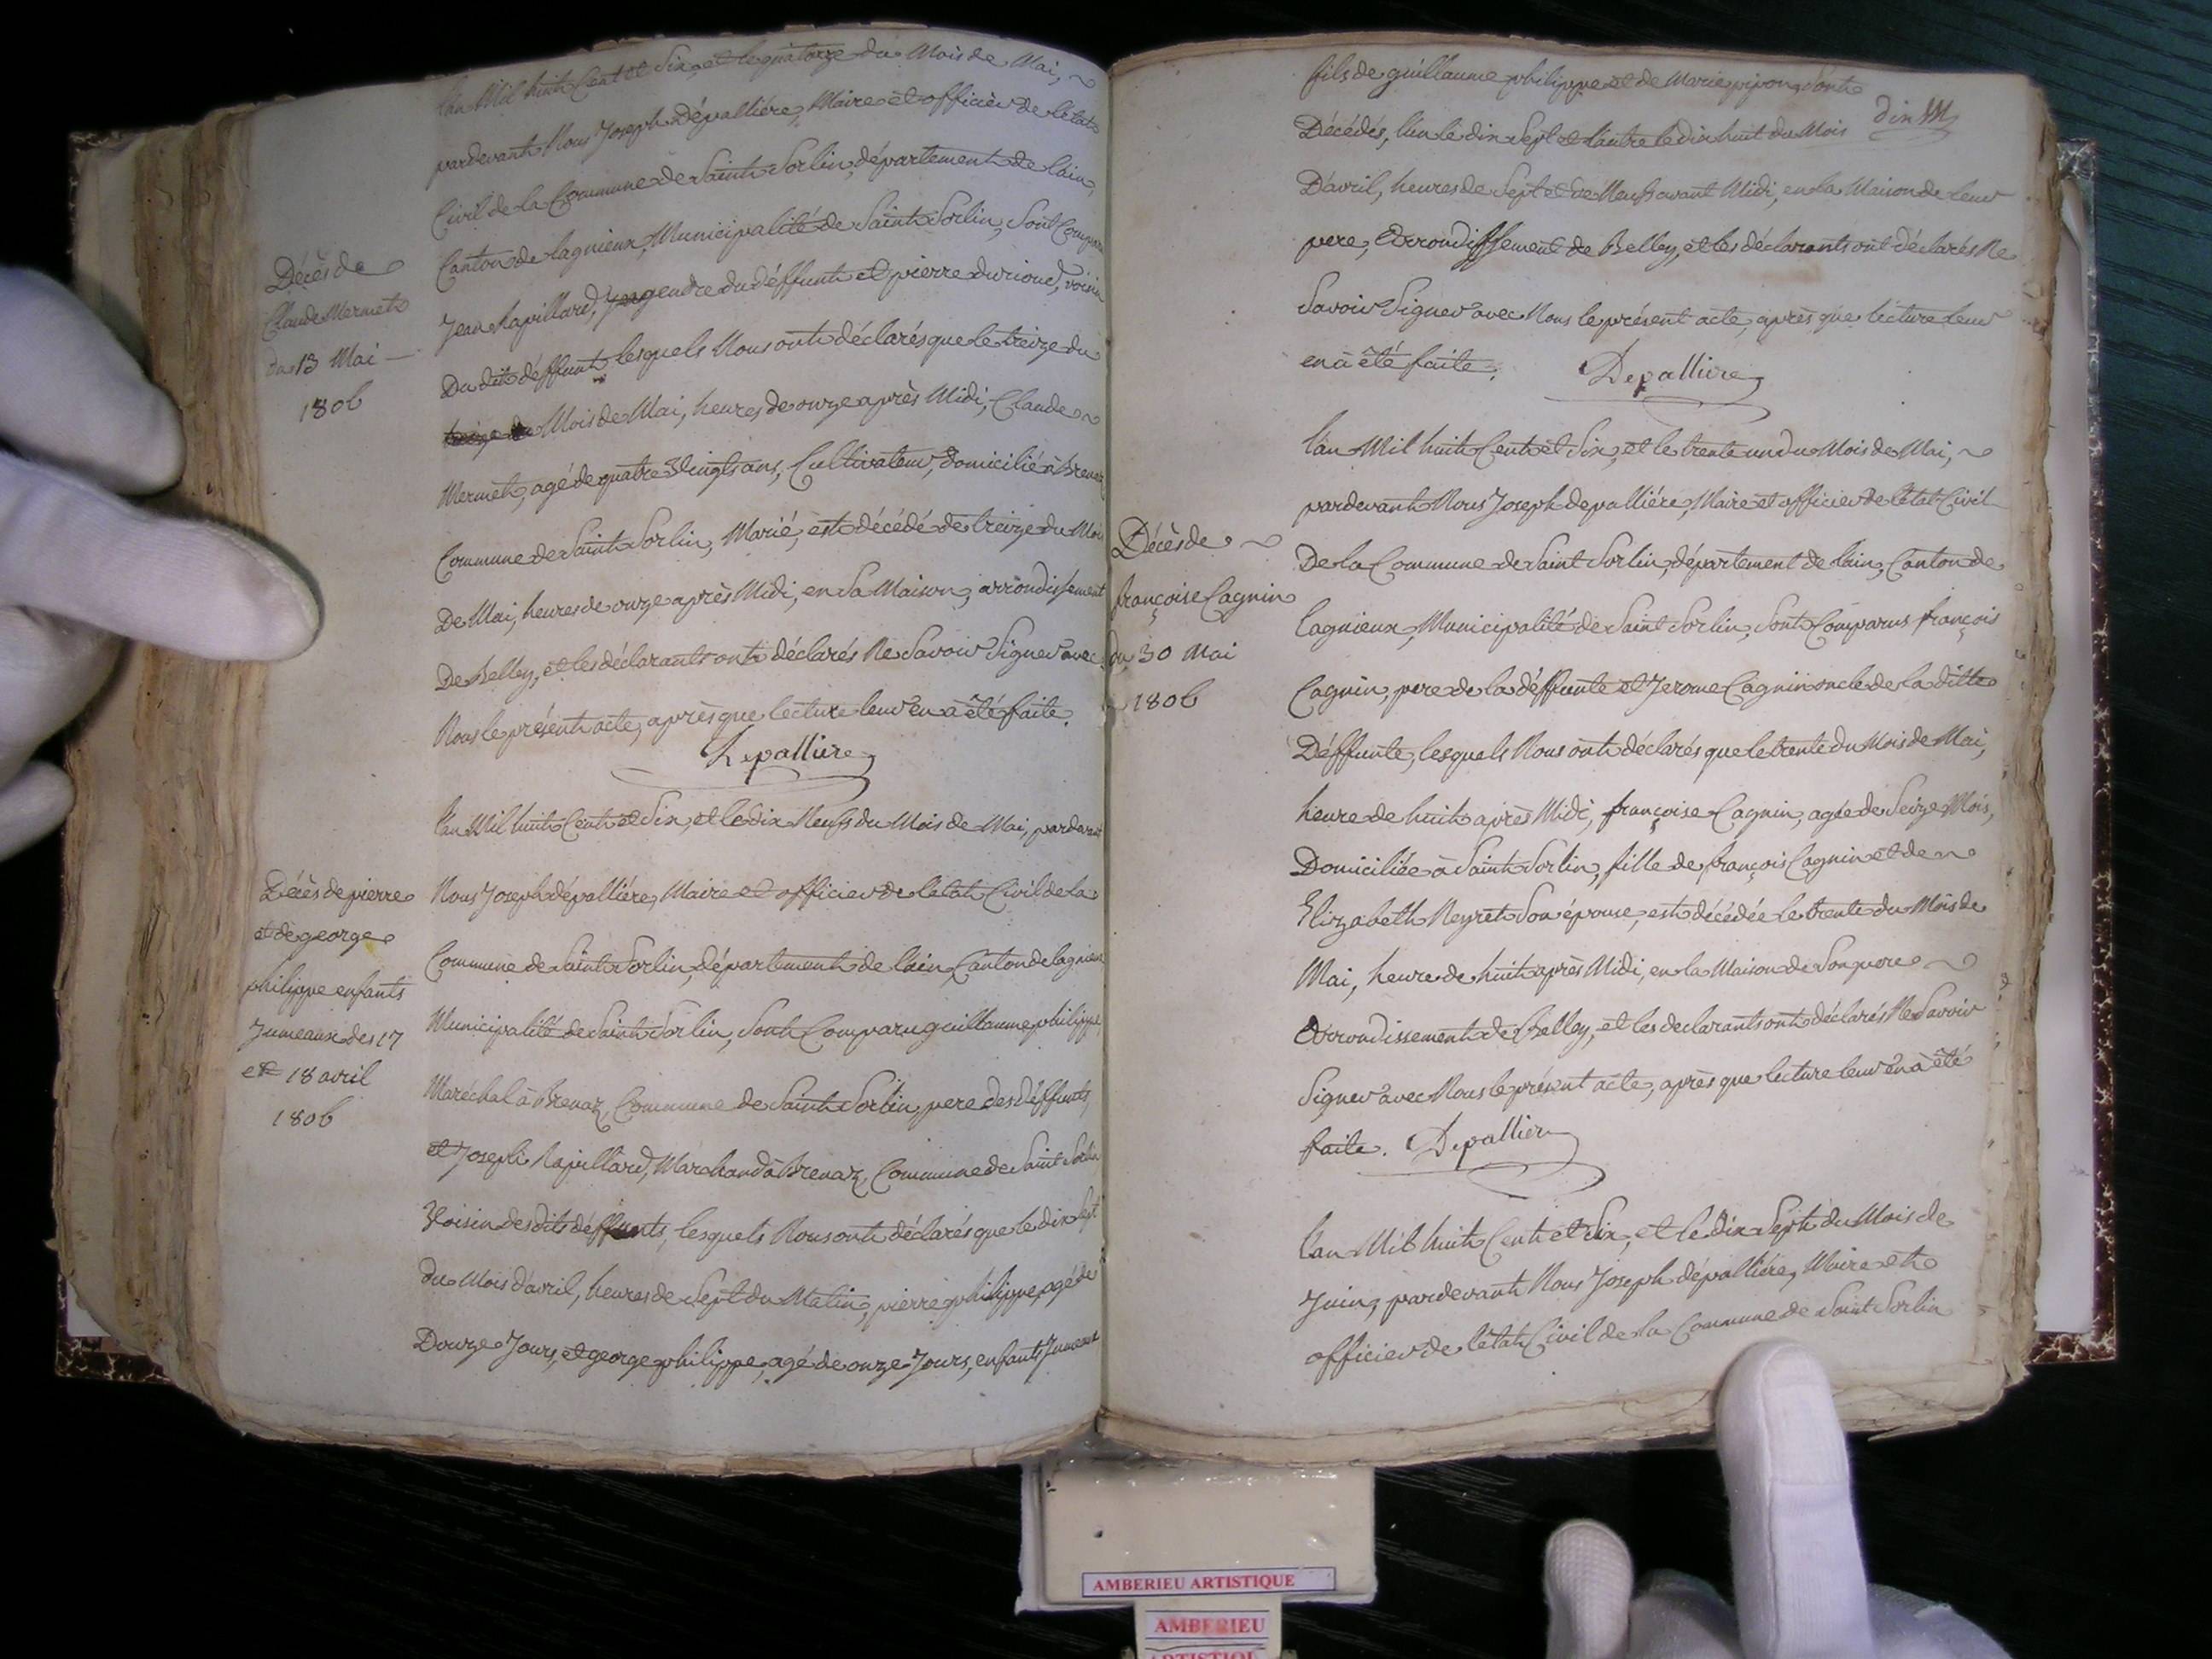 Décès de
Claude Mermet
du 13 Mai
1806
l'an Mil huit Cent et Six, et le quatorze du Mois de Mai,
pardevant Nous Joseph dépalliére, Maire et officier de l'état
Civil de la Commune de Saint Sorlin, département de lain,
Canton de lagnieux, Municipalité de Saint Sorlin, Sont
Jean Rapillard, gendre du déffunt et pierre durioud, voisin
Du dit déffunt lesquels Nous ont déclarés que le treize du
treize du Mois de Mai, heures de onze après Midi, Claude
Mermet, agé de quatre Vingts ans, Cultivateur, domicilié à Brenaz
Commune de Saint Sorlin, Marié, est décédé de treize du Mois
De Mai, heures de onze après Midi, en Sa Maison, arrondissement
De Belley, et les déclarants ont déclarés Ne Savoir Signer avec
Nous le présent acte, après que lecture leur en à été faite.
Depalliere
Décès de pierre
et de george
philippe enfants
Jumeaux des 17
et 18 avril
1806
l'an Mil huit Cent et Six, et le dix Neuf du Mois de Mai, pardevant
Nous Joseph dépalliére, Maire et officier de l'état Civil de la
Commune de Saint Sorlin, département de lain, Canton de lagnieux
Municipalité de Saint Sorlin, Sont Comparu guillaume philippe,
Maréchal à Brenaz, Commune de Saint Sorlin, pere des déffunts,
et Joseph Rapillard, Marchand à Brenaz, Commune de Saint Sorlin
Voisin des dits déffunts, lesquels Nous ont déclarés que le dix Sept
du Mois d'avril, heures de Sept du Matin, pierre philippe, agé de
Douze Jours, et george philippe, agé de onze Jours, enfants Jumeaux
fils de guillaume philippe et de Marie pipon, Sont
Décédés, l'un le dix Sept et l'autre le dix huit du Mois
D'avril, heures de Sept et de Neuf avant Midi, en la Maison de leur
pere, Arrondissement de Belley, et les déclarants ont déclarés Ne
Savoir Signer avec Nous le présent acte, après que lecture leur
en à été faite.
Depalliere
Décès de
françoise Cagnin
du 30 Mai
1806
l'an Mil huit Cent et Six, et le trente un du Mois de Mai,
pardevant Nous Joseph depalliére, Maire et officier de l'état Civil
De la Commune de Saint Sorlin, département de lain, Canton de
Lagnieux, Municipalité de Saint Sorlin, Sont Comparus françois
Cagnin, pere de la déffunte et Jerome Cagnin oncle de la ditte
Déffunte, lesquels Nous ont déclarés que le trente du Mois de Mai,
heure de huit après Midi, françoise Cagnin, agée de Seize Mois,
Domiciliée à Saint Sorlin, fille de françois Cagnin et de
Elizabeth Neyret Son épouse, est décédée le trente du Mois de
Mai, heure de huit après Midi, en la Maison de Son pere
Arrondissement de Belley, et les declarants ont déclarés Ne Savoir
Signer avec Nous le présent acte, après que lecture leur en à été
faite.
Depalliere
l'an Mil huit Cent et Six, et le dix Sept du Mois de
Juin, pardevant Nous Joseph dépalliére, Maire et
officier de l'état Civil de la Commune de Saint Sorlin
AMBERIEU ARTISTIQUE
AMBERIEU
ARTISTIQUE